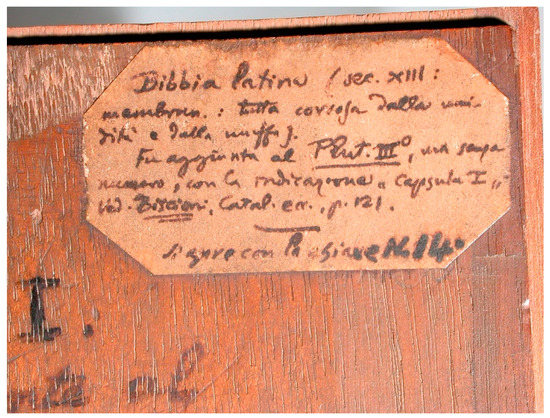 Bibbia latina (sec. XIII:
membran.: tutta corrosa dalla umi-
dità e dalla muffa).
Fu aggiunta al Plut. III°, ma senza
numero, con la indicazione „Capsula I„
ved. Biscioni, Catal. ecc., p. 121.
si apre con la chiave N. 14°
I.